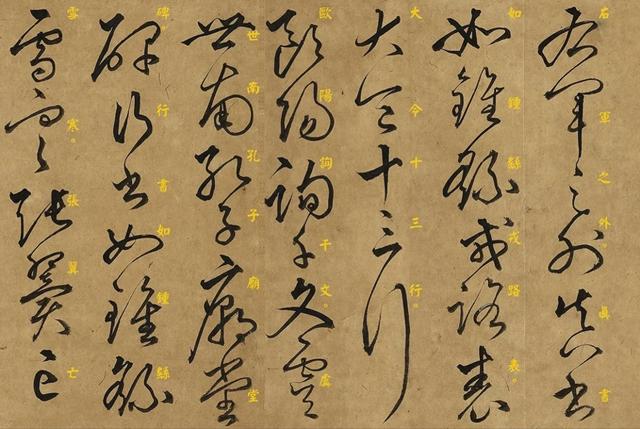 右軍之外。眞書
如鍾繇戎路表。
大令十三行。
歐陽詢千文。虞
世南孔子廟堂
碑。行書如鍾繇
雪寒。張翼亡